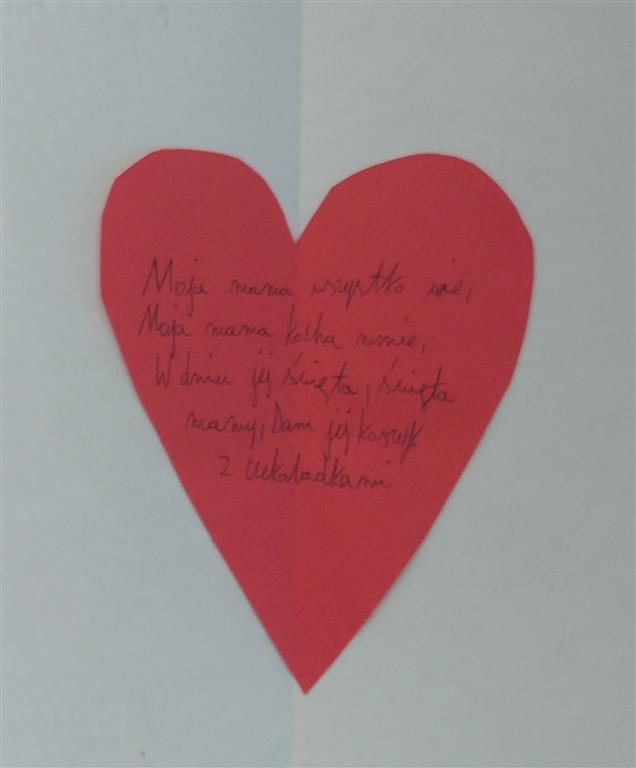 Moja mama wszystko wie,
Moja mama kocha mnie,
W dniu jej święta, święta
mamy, Dam jej koszyk
z czekoladkami